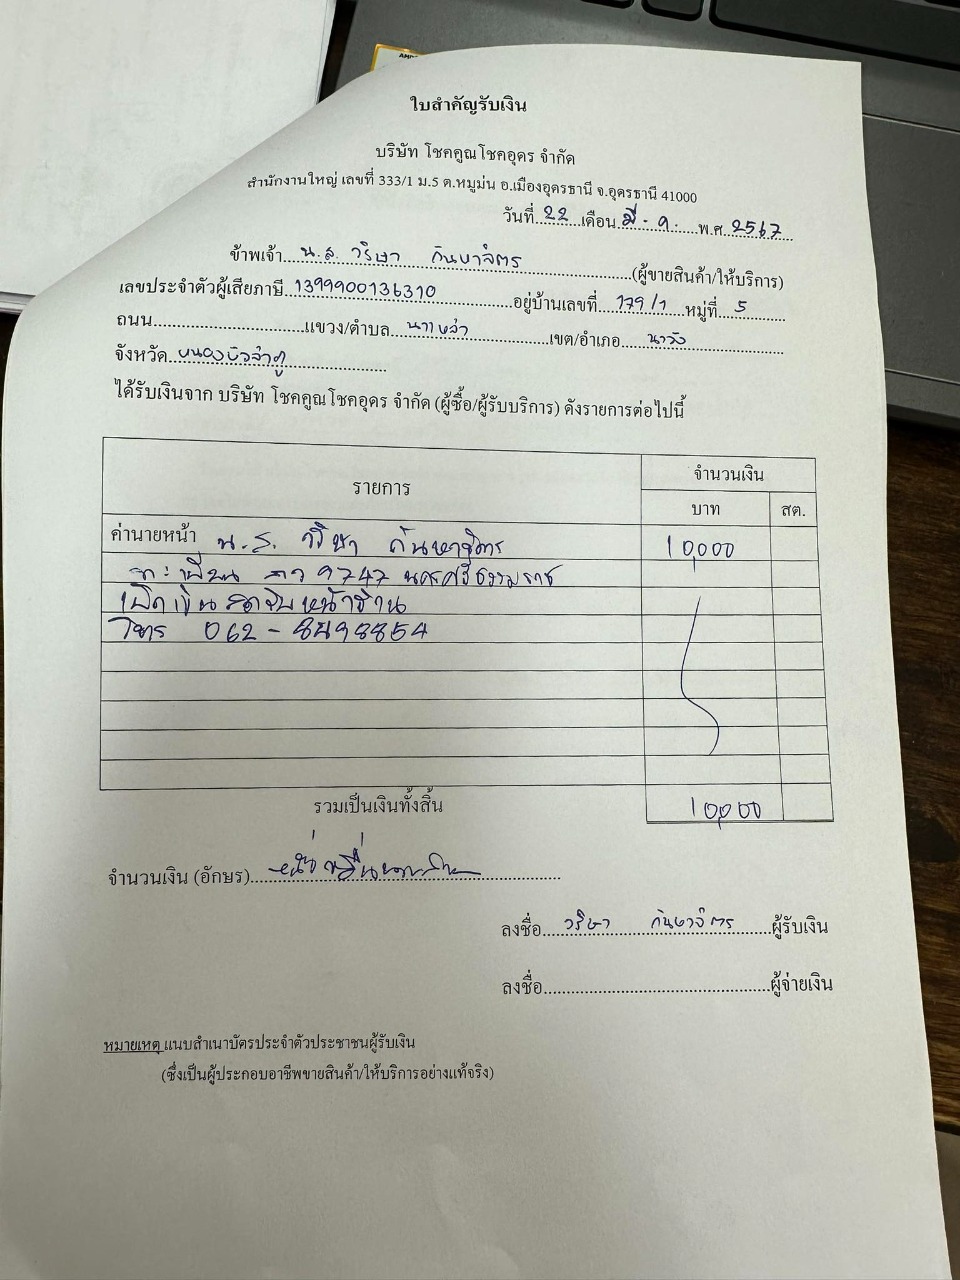 ใบสำคัญรับเงิน
บริษัท โชคคูณโชคอุดร จำกัด
สำนักงานใหญ่ เลขที่ 333/1 ม.5 ต.หมูม่น อ.เมืองอุดรธานี จ.อุดรธานี 41000
วันที่ 22 เดือน มี.ค. พ.ศ. 2567
ข้าพเจ้า น.ส. วริษา กันหาจิตร (ผู้ขายสินค้า/ให้บริการ)
เลขประจำตัวผู้เสียภาษี 1399900136310 อยู่บ้านเลขที่ 179/1 หมู่ที่ 5
ถนน แขวง/ตำบล นาเหล่า เขต/อำเภอ นาวัง
จังหวัด หนองบัวลำภู
ได้รับเงินจาก บริษัท โชคคูณโชคอุดร จำกัด (ผู้ซื้อ/ผู้รับบริการ) ดังรายการต่อไปนี้
รายการ จำนวนเงิน
บาท สต.
ค่านายหน้า น.ส. วริษา กันหาจิตร 10,000
ทะเบียน 9747 นครศรีธรรมราช
เบิกเงินสดรับหน้าร้าน
โทร 062-8498854
รวมเป็นเงินทั้งสิ้น 10,000
จำนวนเงิน (อักษร) หนึ่งหมื่นบาท
ลงชื่อ วริษา กันหาจิตร ผู้รับเงิน
ลงชื่อ ผู้จ่ายเงิน
หมายเหตุ แนบสำเนาบัตรประจำตัวประชาชนผู้รับเงิน
(ซึ่งเป็นผู้ประกอบอาชีพขายสินค้า/ให้บริการอย่างแท้จริง)